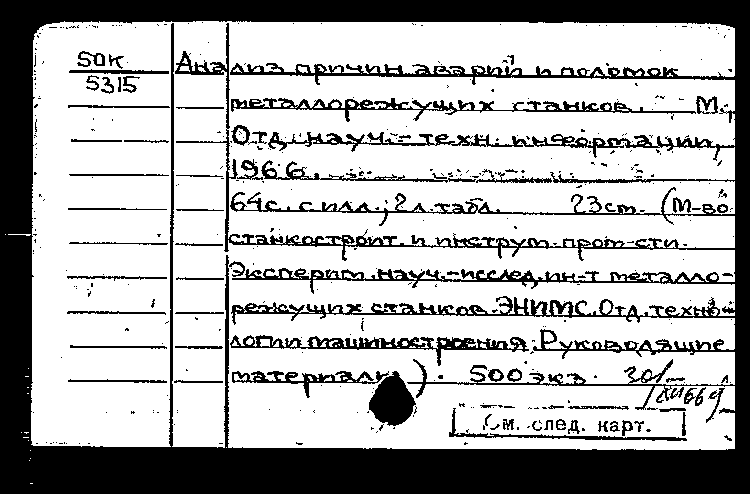 50К
5315
Анализ причин аварий и поломок
металлорежущих станков. М.,
Отд. науч.-техн. информации,
1966.
64с. с илл.; 2 л. табл. 23 см. (М-во
станкостроит. и инструм. пром-сти.
Эксперим. науч.-исслед. ин-т металло-
режущих станков. ЭНИМС. Отд. техно-
логии машиностроения. Руководящие
материалы). 500 экз.
См. след. карт.